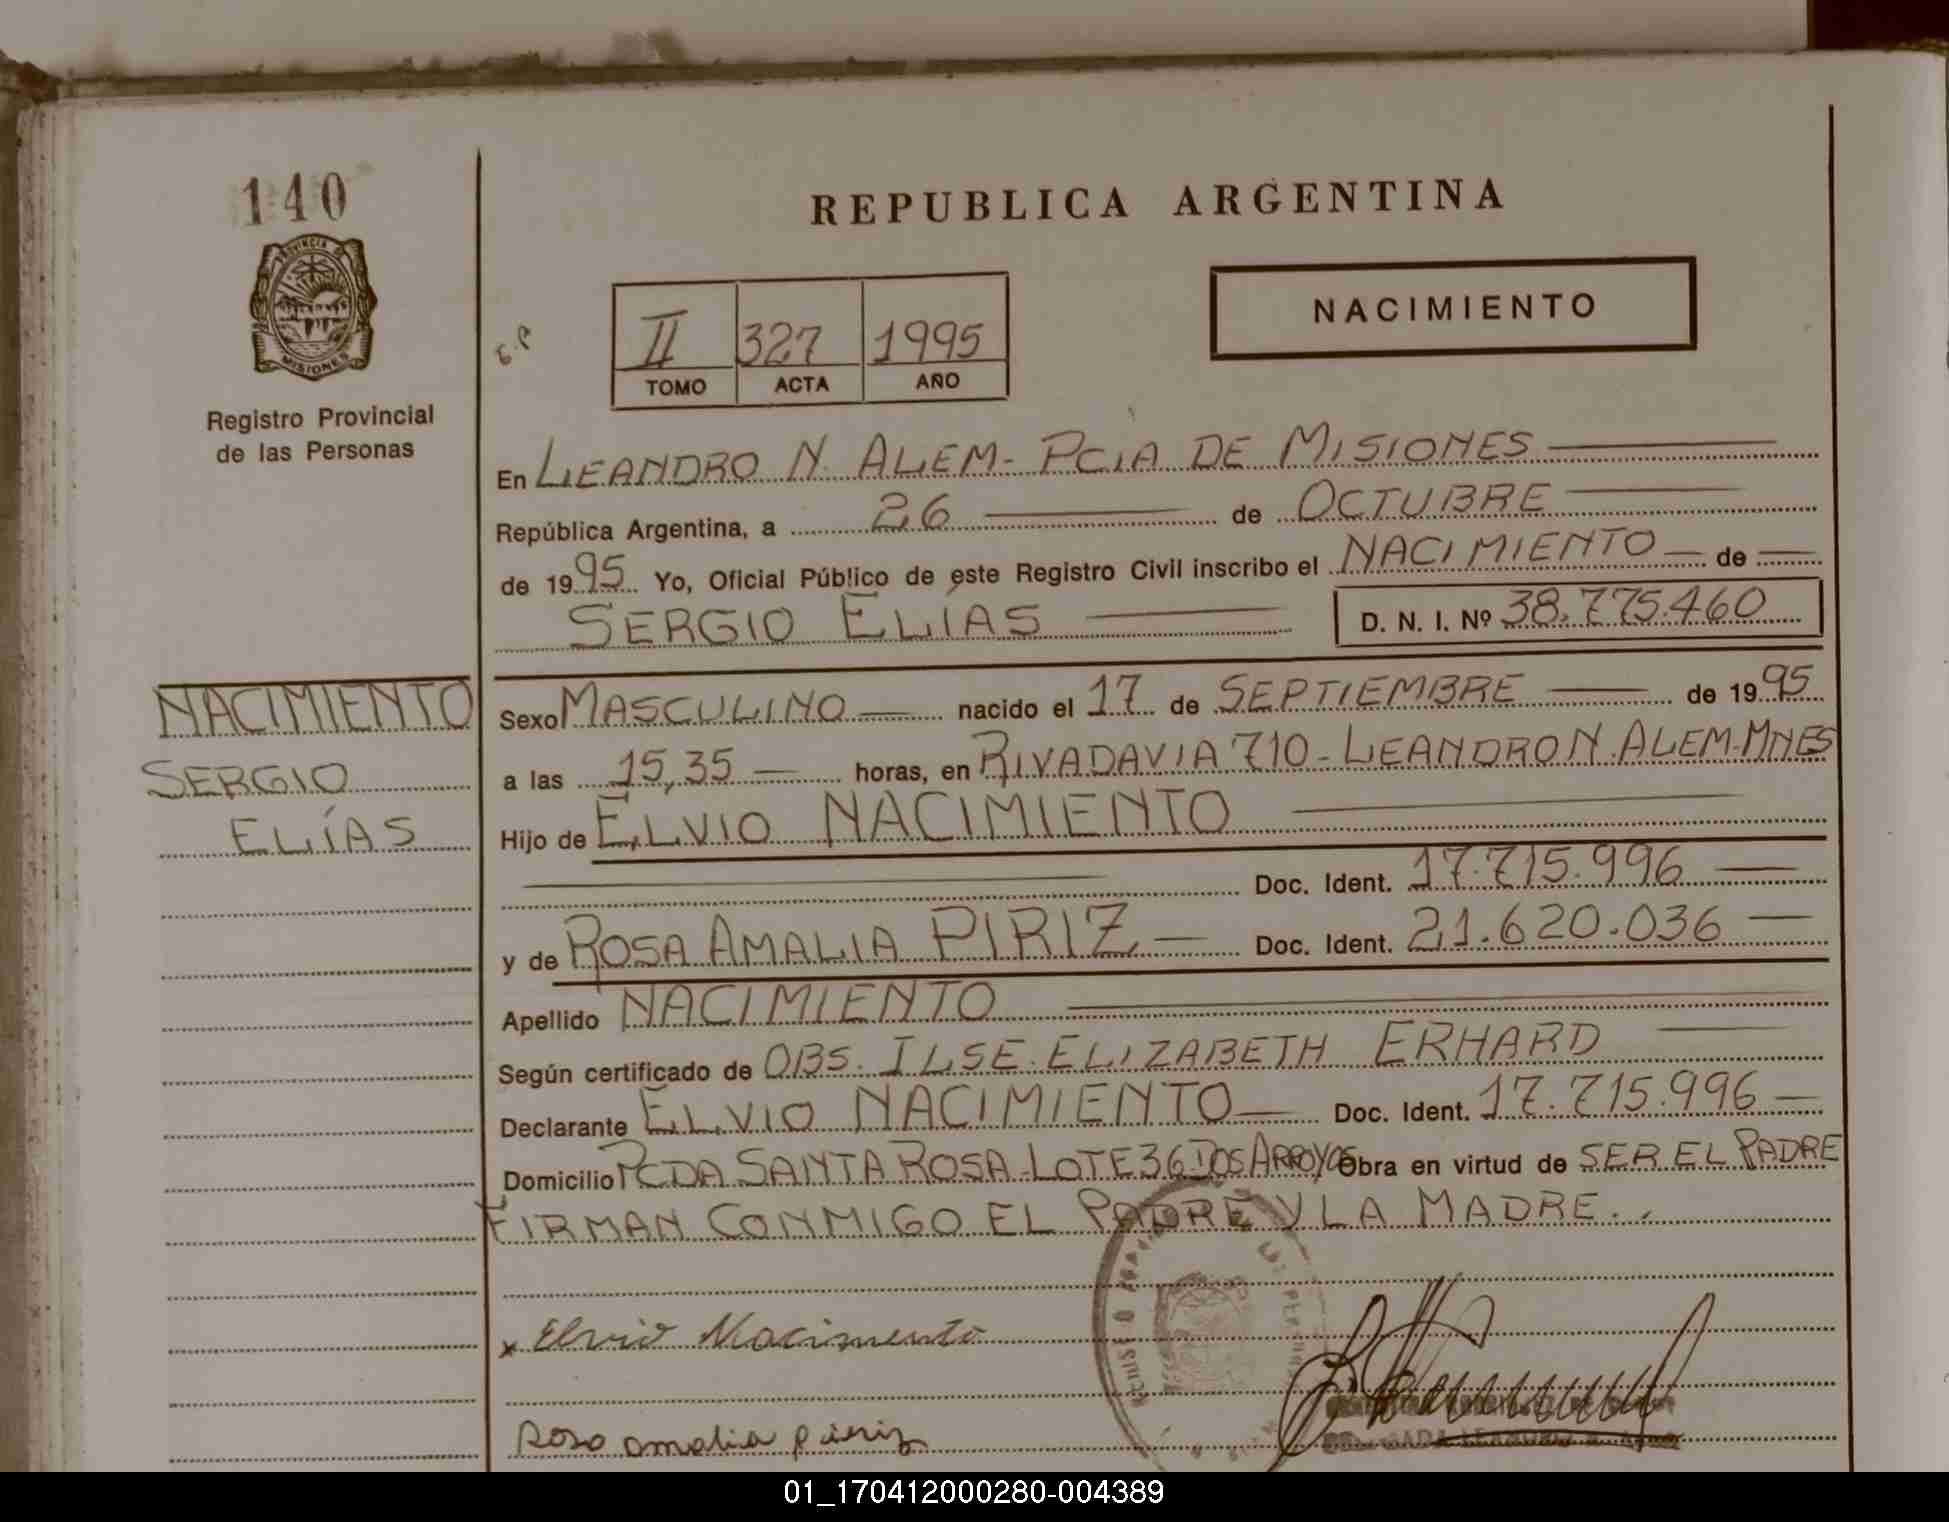 140
REPUBLICA ARGENTINA
PROVINCIA DE
MISIONES
Registro Provincial
de las Personas
II 327 1995
TOMO ACTA AÑO
NACIMIENTO
En LEANDRO N. ALEM - PCIA DE MISIONES
República Argentina, a 26 de OCTUBRE
de 1995 Yo, Oficial Público de este Registro Civil inscribo el NACIMIENTO de
SERGIO ELÍAS D. N. I. Nº 38.775.460
NACIMIENTO
SERGIO
ELÍAS
Sexo MASCULINO nacido el 17 de SEPTIEMBRE de 1995
a las 15,35 horas, en RIVADAVIA 710 - LEANDRO N. ALEM-MNES
Hijo de ELVIO NACIMIENTO
Doc. Ident. 17.715.996
y de ROSA AMALIA PIRIZ Doc. Ident. 21.620.036
Apellido NACIMIENTO
Según certificado de OBS. ILSE ELIZABETH ERHARD
Declarante ELVIO NACIMIENTO Doc. Ident. 17.715.996
Domicilio PCDA SANTA ROSA-LOTE 36 DOS ARROYOS Obra en virtud de SER EL PADRE
FIRMAN CONMIGO EL PADRE Y LA MADRE.
x Elvio Nacimento
Rosa amalia piriz
01_170412000280-004389